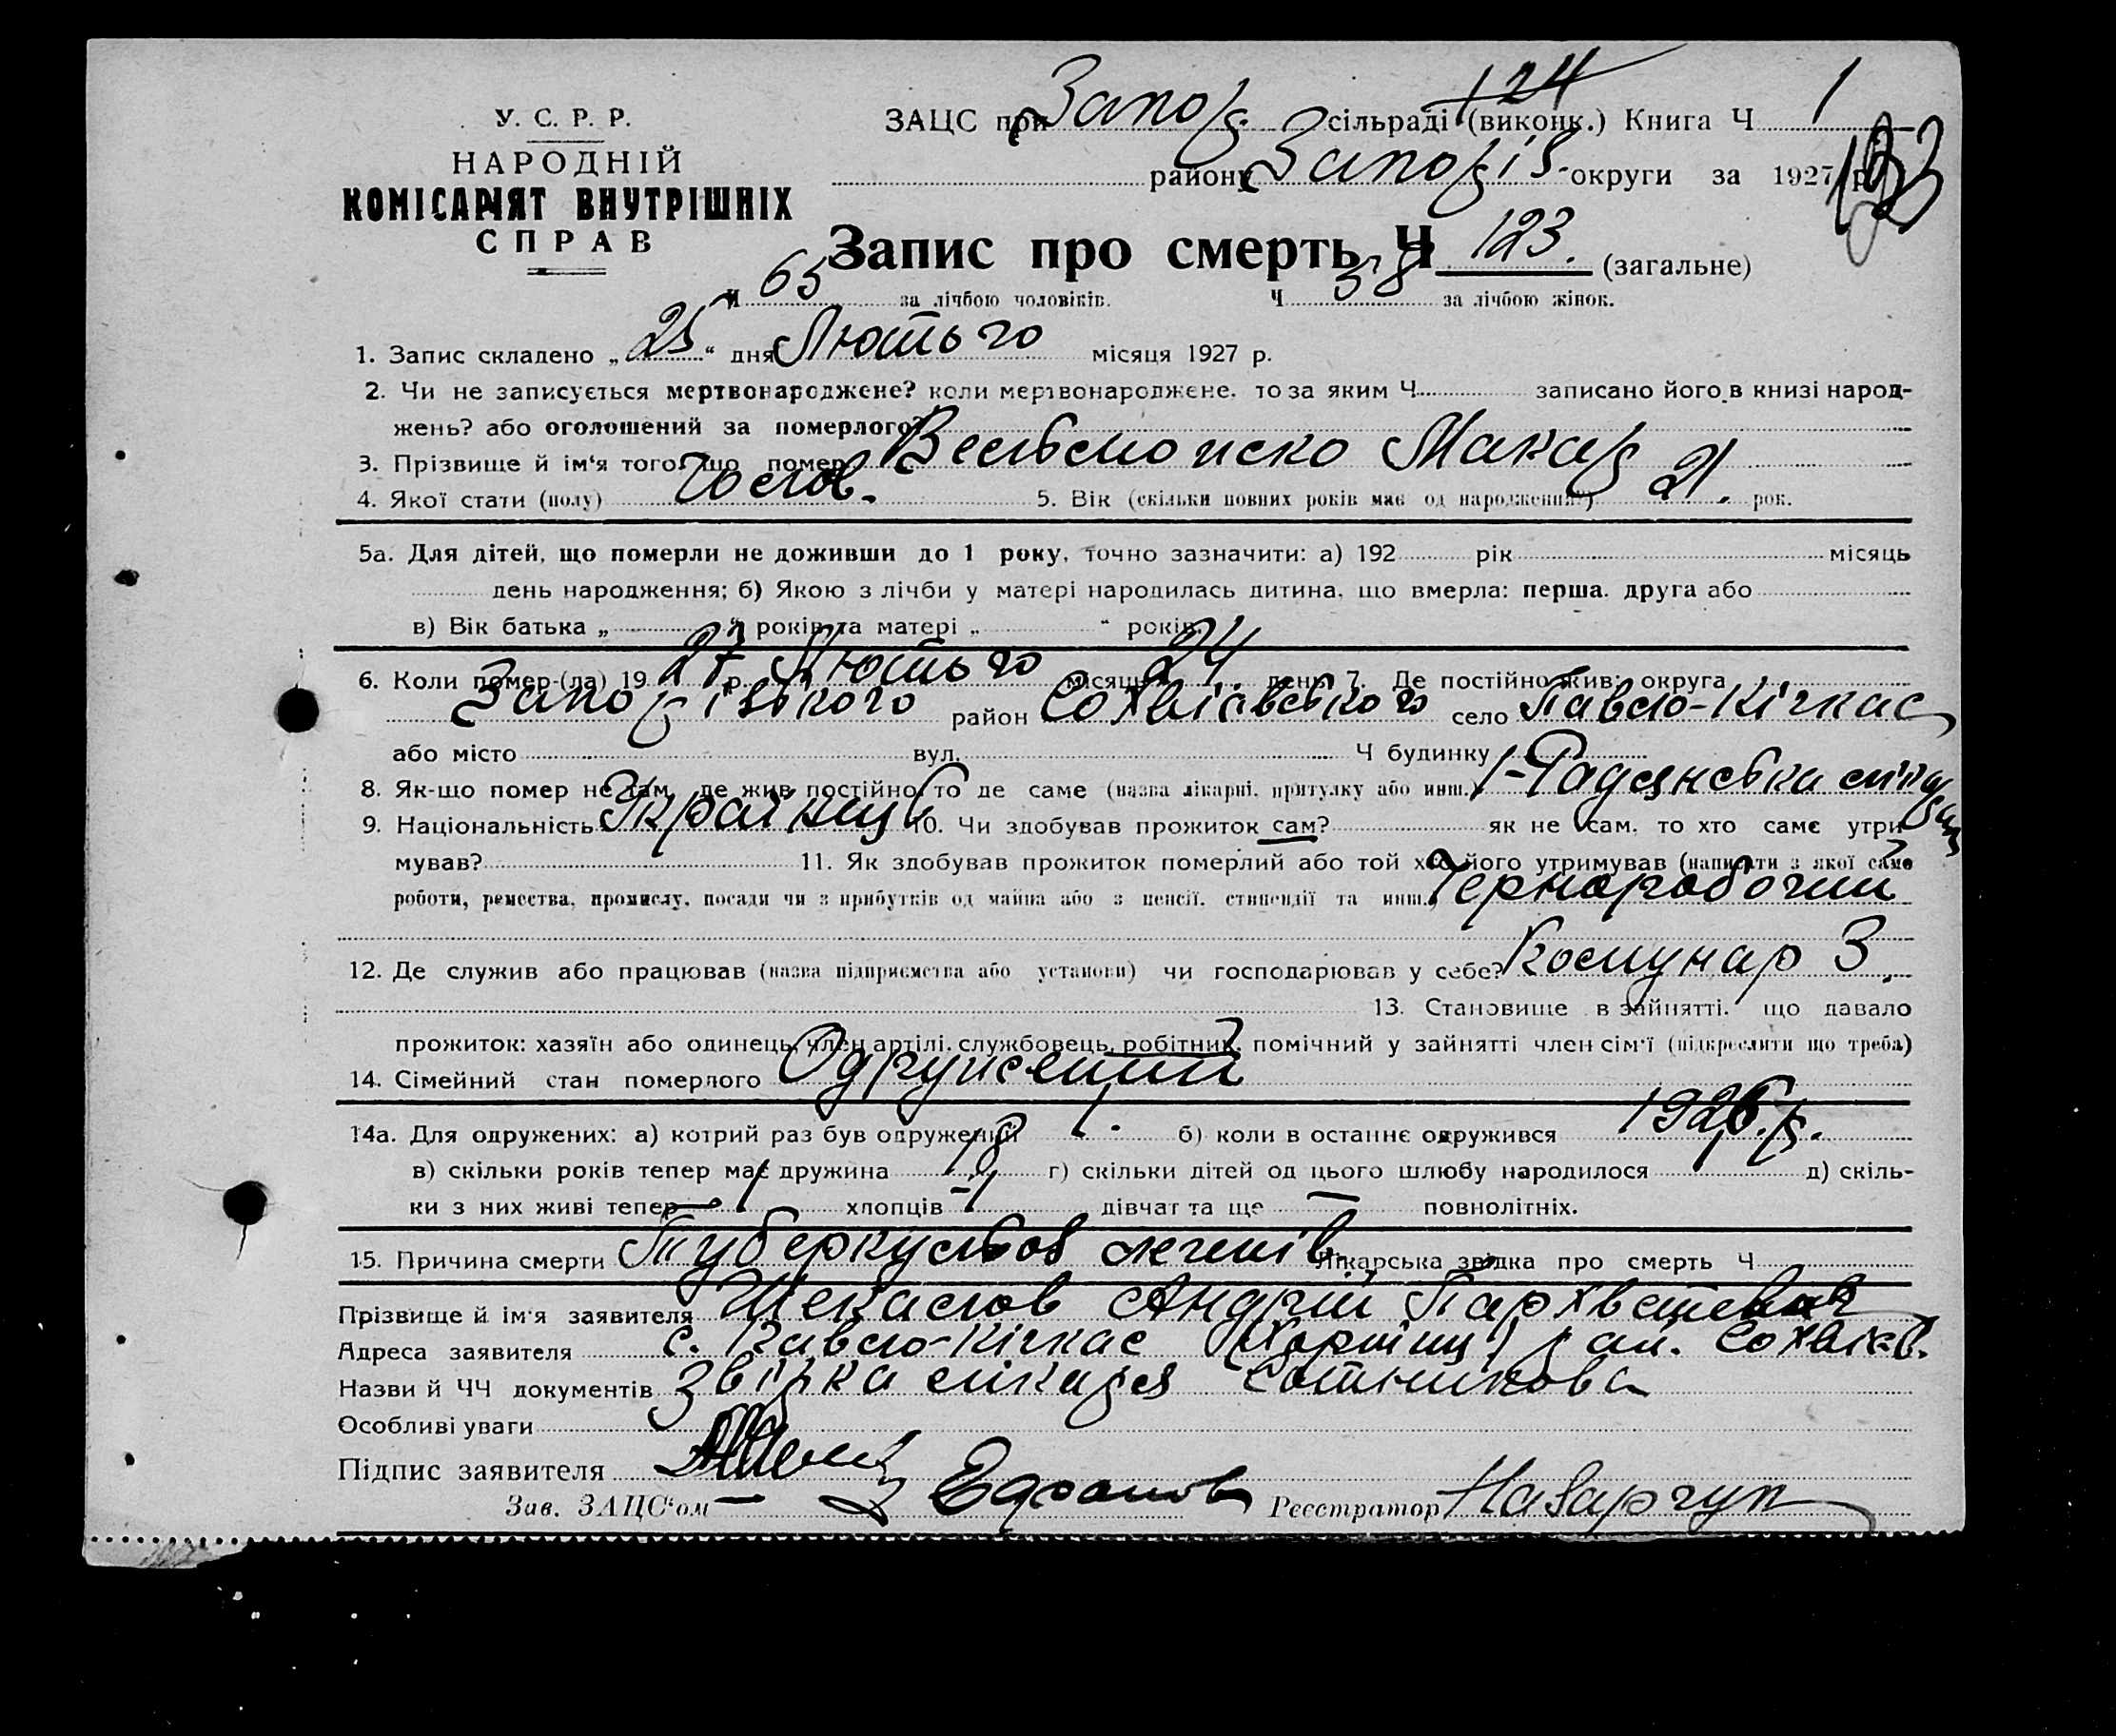 У. С. Р. Р.
НАРОДНІЙ
КОМІСАРІЯТ ВНУТРІШНІХ
СПРАВ
ЗАЦС при Запор. сільраді (виконк.) Книга Ч 1
124
району Запоріз. округи за 1927 р.
Запис про смерть Ч 123. (загальне)
Ч 65 за лічбою чоловіків. Ч 58 за лічбою жінок.
1. Запис складено „25“ дня Лютого місяця 1927 р.
2. Чи не записується мертвонароджене? коли мертвонароджене, то за яким Ч записано його в книзі народ-
жень? або оголошений за померлого?
3. Прізвище й ім'я того, що помер Макар
4. Якої стати (полу) Чолов. 5. Вік (скільки повних років має од народження?) 21. рок.
5а. Для дітей, що померли не доживши до 1 року, точно зазначити: а) 192 рік місяць
день народження; б) Якою з лічби у матері народилась дитина, що вмерла: перша, друга або
в) Вік батька „ “ років та матері „ “ років.
6. Коли помер-(ла) 1927 р. Лютого місяця 24 день 7. Де постійно жив: округа
Запорізького район село Павло-Кічкас
або місто вул. Ч будинку
8. Як-що помер не там, де жив постійно, то де саме (назва лікарні, притулку або инш.) 1-Радянська
9. Національність Українець 10. Чи здобував прожиток сам? як не сам, то хто саме утри-
мував? 11. Як здобував прожиток померлий або той хто його утримував (написати з якої саме
роботи, ремества, промислу, посади чи з прибутків од майна або з пенсії, стипендії та инш.) Чорноробочий
12. Де служив або працював (назва підприємства або установи) чи господарював у себе? Комунар З.
13. Становище в зайнятті, що давало
прожиток: хазяїн або одинець, член артілі, службовець, робітник, помічний у зайнятті член сім'ї (підкреслити що треба)
14. Сімейний стан померлого Одружений
14а. Для одружених: а) котрий раз був одружений 1. б) коли в останнє одружився 1926.р.
в) скільки років тепер має дружина 18 г) скільки дітей од цього шлюбу народилося д) скіль-
ки з них живі тепер 1 хлопців – дівчат та ще – повнолітніх.
15. Причина смерти Туберкульоз легенів. Лікарська звідка про смерть Ч
Прізвище й ім'я заявителя Андрій
Адреса заявителя с. Павло-Кічкас
Назви й ЧЧ документів лікаря Сотникова
Особливі уваги
Підпис заявителя
Зав. ЗАЦС'ом Реєстратор